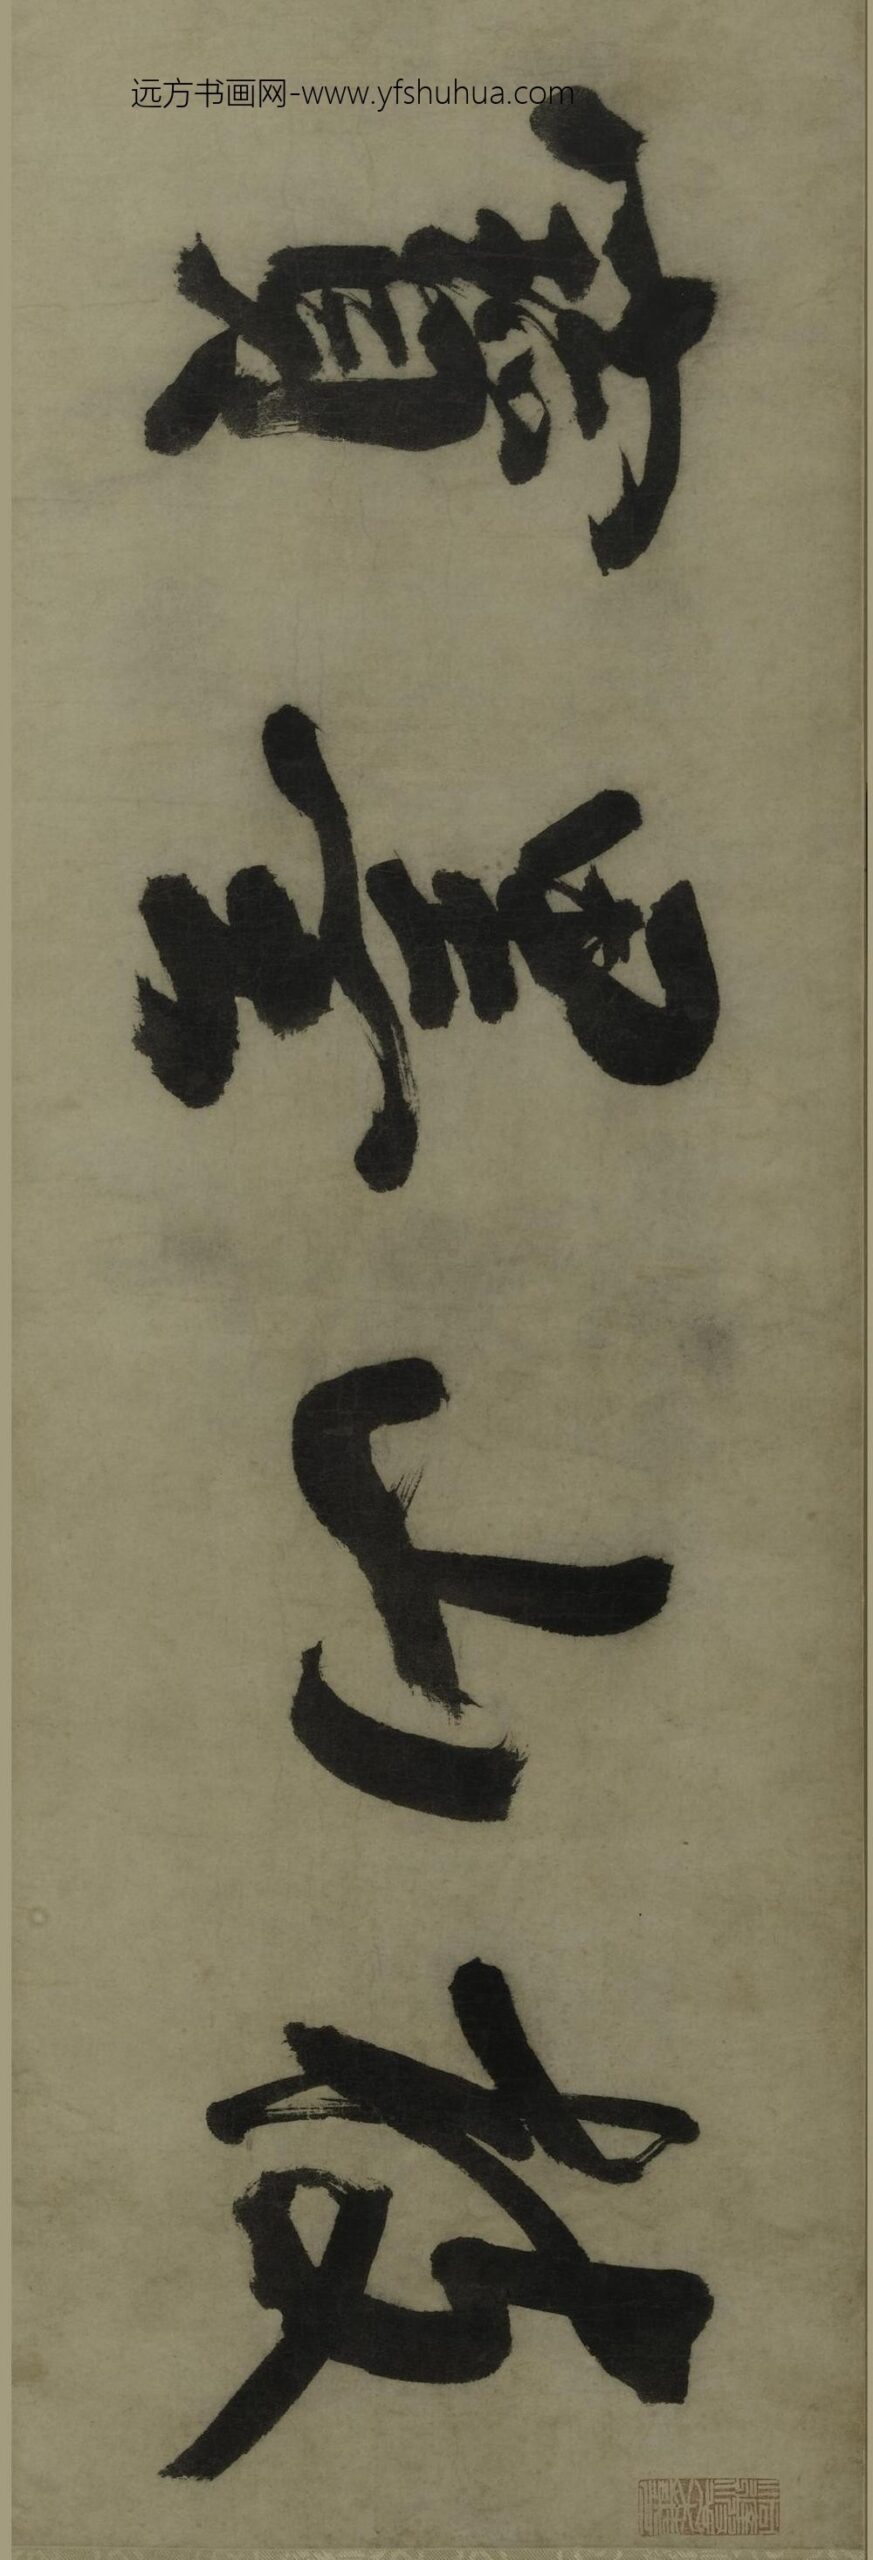 远方书画网-www.yfshuhua.com
枝山墨寶